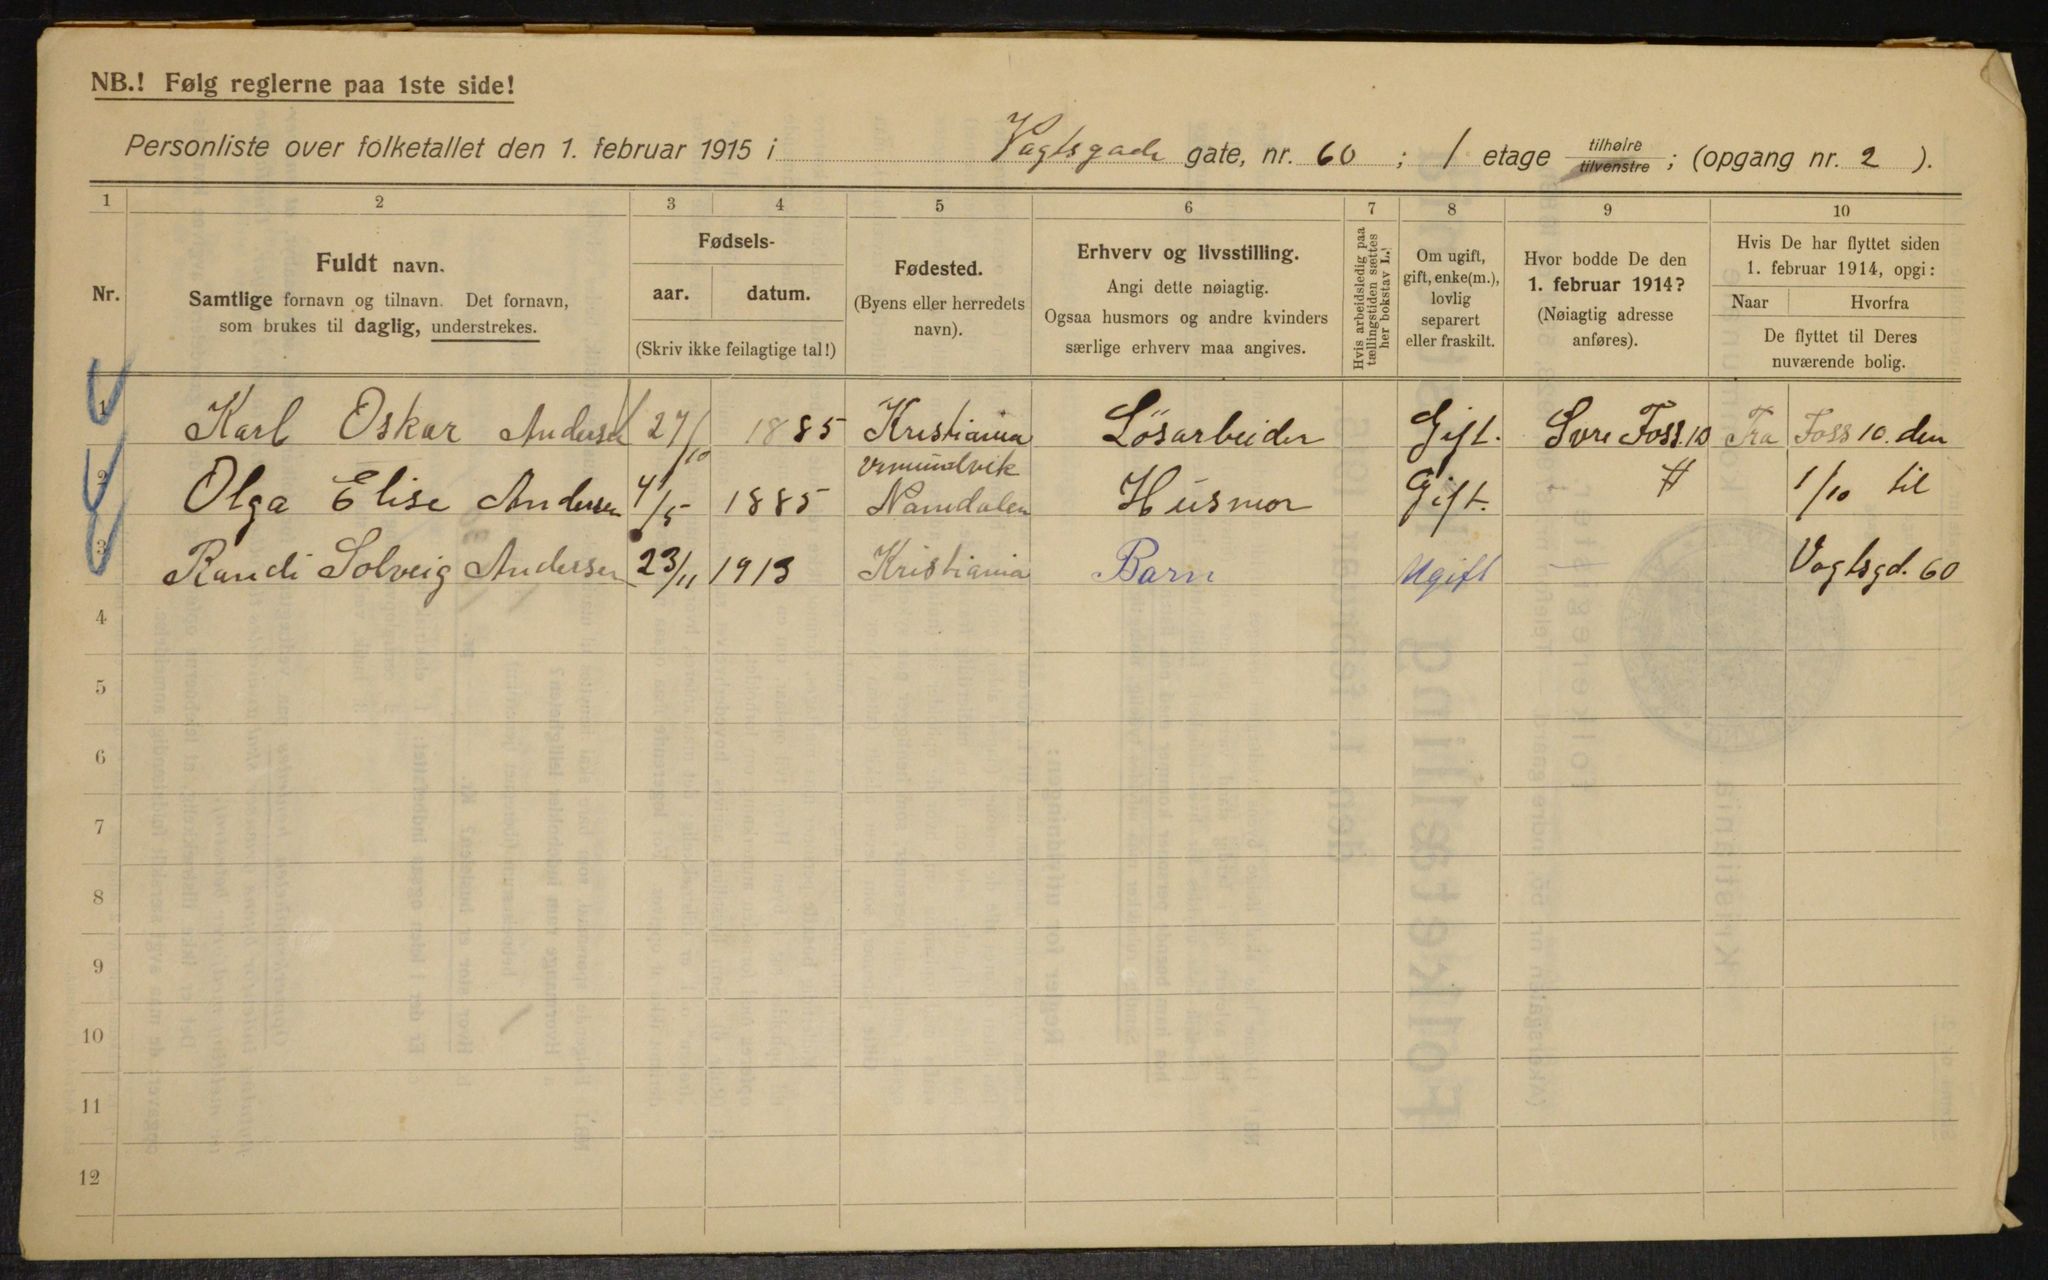 NB.! Følg reglerne paa 1ste side!
Personliste over folketallet den 1. februar 1915 i Vogtsgade gate, nr. 60 ; 1 etage tilhøire tilvenstre ; (opgang nr. 2 ).
1 2 3 4 5 6 7 8 9 10
Nr.
Fuldt navn.
Samtlige fornavn og tilnavn. Det fornavn,
som brukes til daglig, understrekes.
Fødsels-
aar. datum.
(Skriv ikke feilagtige tal!)
Fødested.
(Byens eller herredets
navn).
Erhverv og livsstilling.
Angi dette nøiagtig.
Ogsaa husmors og andre kvinders
særlige erhverv maa angives.
Hvis arbeidsledig paa
tællingstiden sættes
her bokstav L.
Om ugift,
gift, enke(m.),
lovlig
separert
eller fraskilt.
Hvor bodde De den
1. februar 1914?
(Nøiagtig adresse
anføres).
Hvis De har flyttet siden
1. februar 1914, opgi:
Naar Hvorfra
De flyttet til Deres
nuværende bolig.
1 Karl Oskar Andersen 27/10 1885 Kristiania Lösarbeider Gift. Søre Foss. 10 Fra Foss 10. den
2 Olga Elise Andersen 4/5 1885 Namdalen Husmor Gift. 1/10 til
3 Randi Solveig Andersen 23/11 1913 Kristiania Barn Ugift Vogtsgd. 60
4
5
6
7
8
9
10
11
12